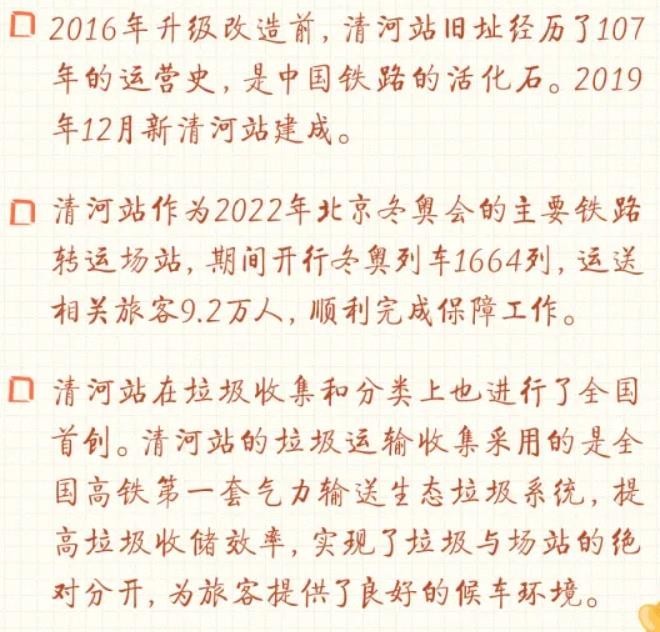 2016年升级改造前，清河站旧址经历了107
年的运营史，是中国铁路的活化石。2019
年12月新清河站建成。
清河站作为2022年北京冬奥会的主要铁路
转运场站，期间开行冬奥列车1664列，运送
相关旅客9.2万人，顺利完成保障工作。
清河站在垃圾收集和分类上也进行了全国
首创。清河站的垃圾运输收集采用的是全
国高铁第一套气力输送生态垃圾系统，提
高垃圾收储效率，实现了垃圾与场站的绝
对分开，为旅客提供了良好的候车环境。